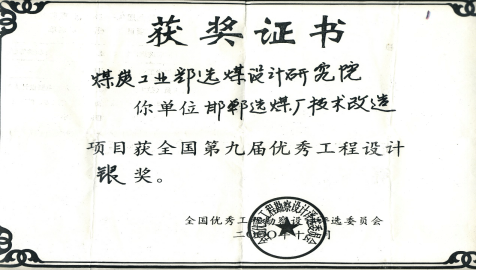 获奖证书
煤炭工业部选煤设计研究院
你单位邯郸选煤厂技术改造
项目获全国第九届优秀工程设计
银奖。
全国优秀工程勘察设计评选委员会
二〇〇〇年十月